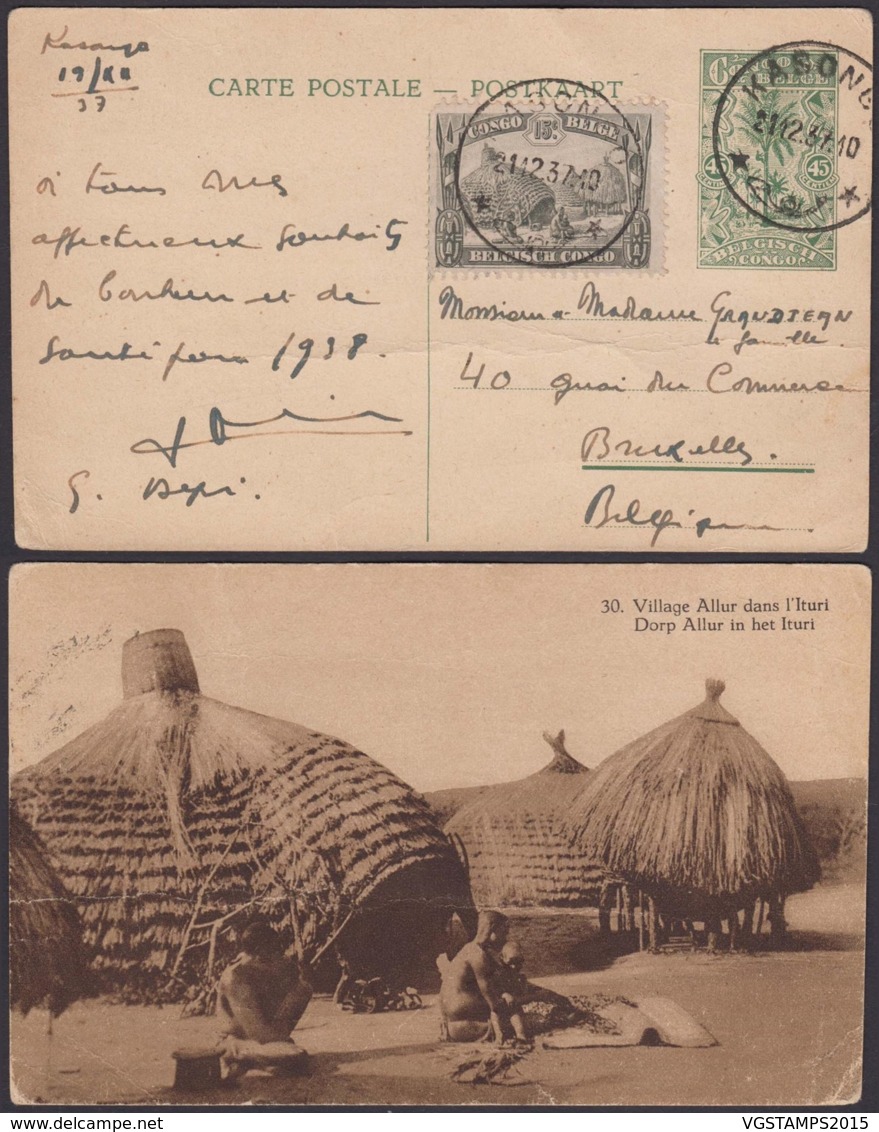 Kasongo
19/XII
37
CARTE POSTALE — POSTKAART
à tous mes
affectueux souhaits
de bonheur et de
santé pour 1938.
G.
CONGO 15c. BELGE
BELGISCH CONGO
KASONGO
21.12.37.10
CONGO BELGE
45 45
BELGISCH CONGO
KASONGO
21.12.37.10
Monsieur Madame GRANDJEAN
& famille.
40 quai du Commerce
Bruxelles
Belgique
30. Village Allur dans l'Ituri
Dorp Allur in het Ituri
VGSTAMPS2015